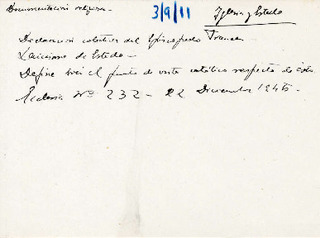 Documentación religiosa. 3/9/11 Iglesia y Estado
Declaración colectiva del Episcopado Francés
Laicismo de Estado.-
Define bien el punto de vista católico respecto de
Ecclesia Nº 232 - 22 Diciembre 1945.